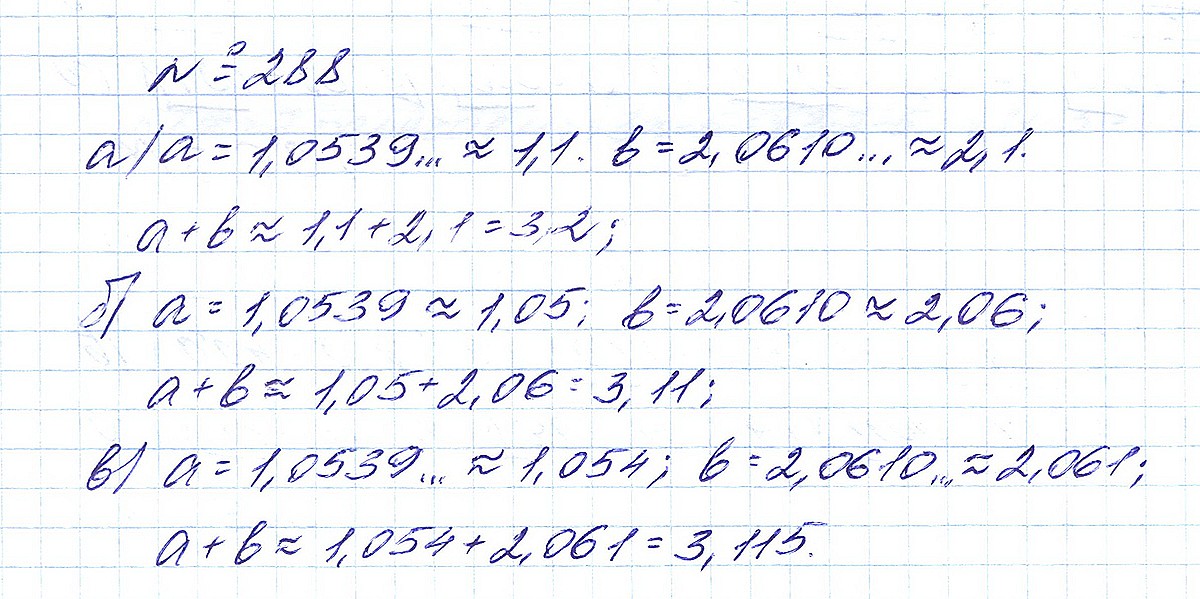 № 288
а) a = 1,0539... ≈ 1,1. b = 2,0610... ≈ 2,1.
a + b ≈ 1,1 + 2,1 = 3,2;
б) a = 1,0539 ≈ 1,05; b = 2,0610 ≈ 2,06;
a + b ≈ 1,05 + 2,06 = 3,11;
в) a = 1,0539... ≈ 1,054; b = 2,0610... ≈ 2,061;
a + b ≈ 1,054 + 2,061 = 3,115.